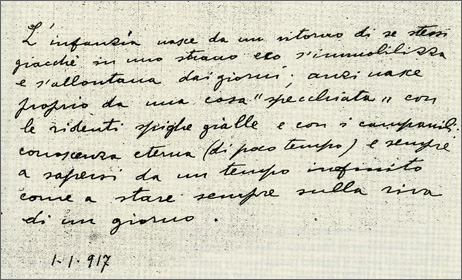 L'infanzia nasce da un ritorno di se stessi
giacchè in uno strano eco s'immobilizza
e s'allontana dai giorni; anzi nasce
proprio da una cosa "specchiata" con
le ridenti spighe gialle e con i campanili
conoscenza eterna (di poco tempo) e sempre
a sapersi da un tempo infinito
come a stare sempre sulla riva
di un giorno.
1.1.917